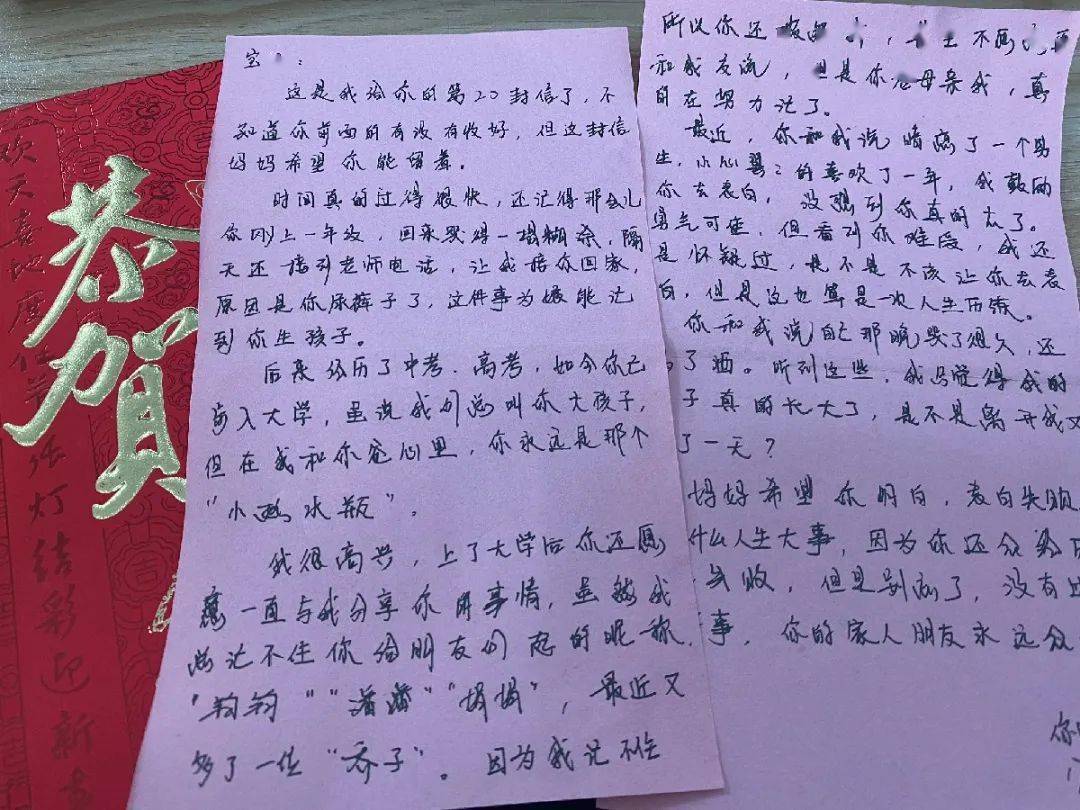 恭
贺
欢天喜地度佳节张灯结彩迎新
宝：
这是我给你的第20封信了，不
知道你前面的有没有收好，但这封信
妈妈希望你能留着。
时间真的过得很快，还记得那会儿
你刚上一年级，回来哭得一塌糊涂，隔
天还接到老师电话，让我陪你回家，
原因是你尿裤子了，这件事为娘能记
到你生孩子。
后来经历了中考、高考，如今你已
步入大学，虽说我们总叫你大孩子，
但在我和你爸心里，你永远是那个
“小水瓶”。
我很高兴，上了大学后你还愿
意一直与我分享你的事情，虽然我
总记不住你给朋友们起的昵称，
“钧钧”“潘潘”“娟娟”，最近又
多了一位“乔子”。因为我记不住
所以你还，不愿
和我交流，但是你老母亲我，真
的在努力记了。
最近，你和我说暗恋了一个男
生，小心翼翼的喜欢了一年，我鼓励
你去表白，没想到你真的去了。
勇气可佳，但看到你难受，我还
是怀疑过，是不是不该让你去表
白，但是这也算是一次人生历练。
你和我说自己那晚哭了很久，还
了酒。听到这些，我只觉得我的
子真的长大了，是不是离开我又
了一天？
妈妈希望你明白，表白失败
什么人生大事，因为你还会努
失败，但是别怕了，没有过
事，你的家人朋友永远会
你